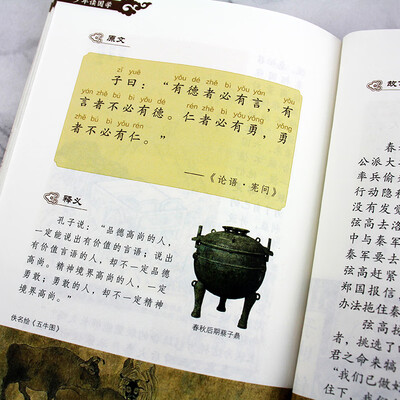 少年读国学
原文
zǐ yuē yǒu dé zhě bì yǒu yán yǒu
子曰：“有德者必有言，有
yán zhě bú bì yǒu dé rén zhě bì yǒu yǒng yǒng
言者不必有德。仁者必有勇，勇
zhě bú bì yǒu rén
者不必有仁。”
——《论语·宪问》
释义
孔子说：“品德高尚的人，
一定能说出有价值的言语；说出
有价值言语的人，却不一定品德
高尚。精神境界高尚的人，一定
勇敢；勇敢的人，却不一定精神
境界高尚。”
春秋后期蔡子鼎
佚名绘《五牛图》
故
春
公派大
率兵偷
行动隐
没有发
弦高去洛
中与秦军
秦军要去
弦高赶紧
郑国报信，
办法拖住秦
弦高
者，挑选了
君之命来犒
“我们已做好
住下，